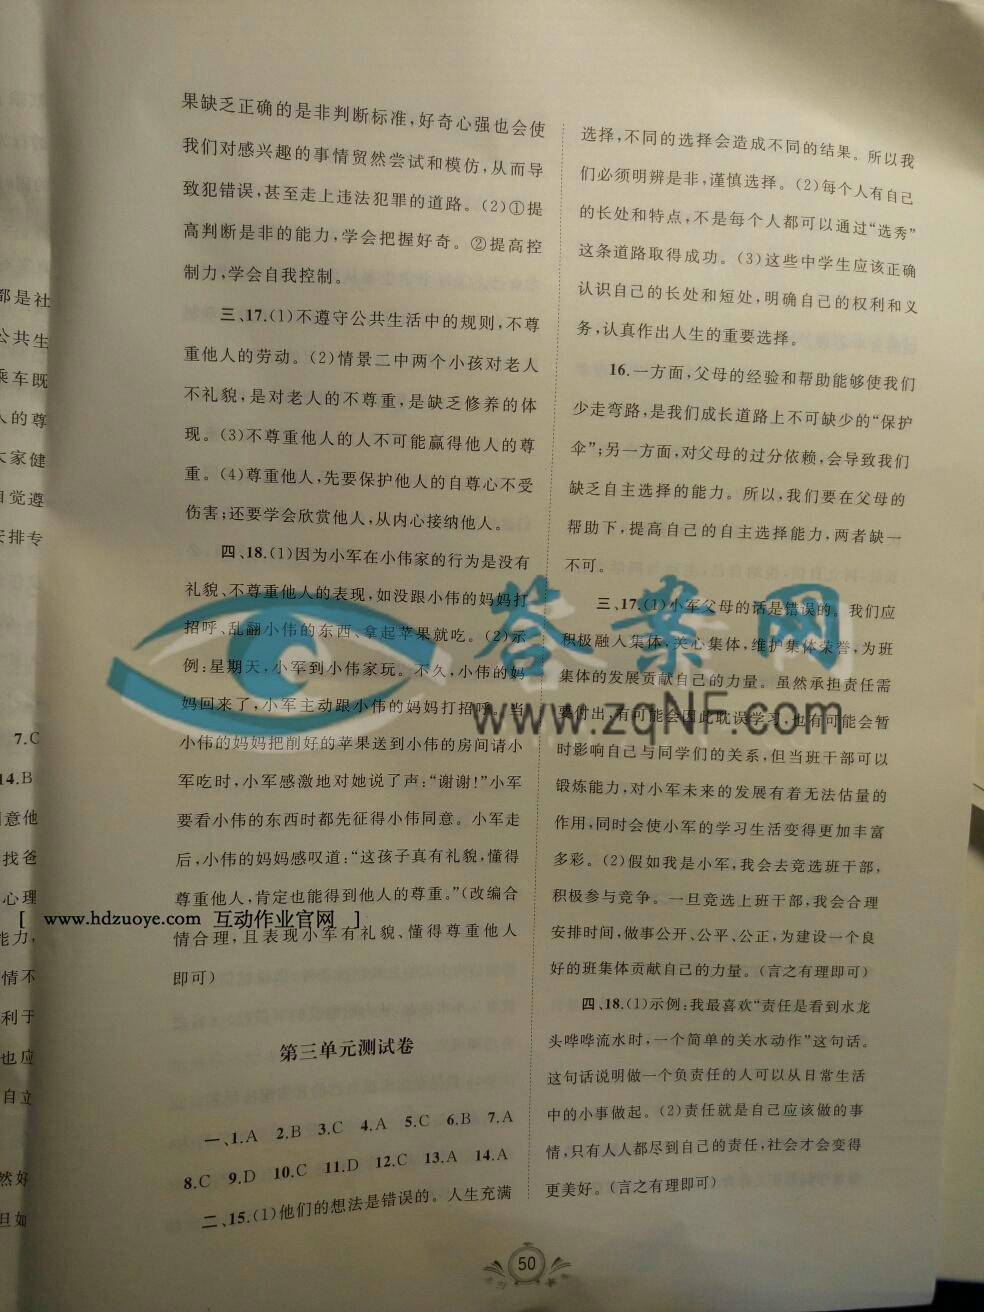 果缺乏正确的是非判断标准,好奇心强也会使
我们对感兴趣的事情贸然尝试和模仿,从而导
致犯错误,甚至走上违法犯罪的道路。(2)①提
高判断是非的能力,学会把握好奇。②提高控
制力,学会自我控制。
三、17.(1)不遵守公共生活中的规则,不尊
重他人的劳动。(2)情景二中两个小孩对老人
不礼貌,是对老人的不尊重,是缺乏修养的体
现。(3)不尊重他人的人不可能赢得他人的尊
重。(4)尊重他人,先要保护他人的自尊心不受
伤害;还要学会欣赏他人,从内心接纳他人。
四、18.(1)因为小军在小伟家的行为是没有
礼貌、不尊重他人的表现,如没跟小伟的妈妈打
招呼、乱翻小伟的东西、拿起苹果就吃。(2)示
例:星期天,小军到小伟家玩。不久,小伟的妈
妈回来了,小军主动跟小伟的妈妈打招呼。当
小伟的妈妈把削好的苹果送到小伟的房间请小
军吃时,小军感激地对她说了声:“谢谢!”小军
要看小伟的东西时都先征得小伟同意。小军走
后,小伟的妈妈感叹道:“这孩子真有礼貌,懂得
尊重他人,肯定也能得到他人的尊重。”(改编合
情合理,且表现小军有礼貌、懂得尊重他人
即可)
第三单元测试卷
一、1.A 2.B 3.C 4.A 5.C 6.B 7.A
8.C 9.D 10.C 11.D 12.C 13.A 14.A
二、15.(1)他们的想法是错误的。人生充满
选择,不同的选择会造成不同的结果。所以我
们必须明辨是非,谨慎选择。(2)每个人有自己
的长处和特点,不是每个人都可以通过“选秀”
这条道路取得成功。(3)这些中学生应该正确
认识自己的长处和短处,明确自己的权利和义
务,认真作出人生的重要选择。
16.一方面,父母的经验和帮助能够使我们
少走弯路,是我们成长道路上不可缺少的“保护
伞”;另一方面,对父母的过分依赖,会导致我们
缺乏自主选择的能力。所以,我们要在父母的
帮助下,提高自己的自主选择能力,两者缺一
不可。
三、17.(1)小军父母的话是错误的。我们应
积极融入集体,关心集体,维护集体荣誉,为班
集体的发展贡献自己的力量。虽然承担责任需
要付出,有可能会因此耽误学习,也有可能会暂
时影响自己与同学们的关系,但当班干部可以
锻炼能力,对小军未来的发展有着无法估量的
作用,同时会使小军的学习生活变得更加丰富
多彩。(2)假如我是小军,我会去竞选班干部,
积极参与竞争。一旦竞选上班干部,我会合理
安排时间,做事公开、公平、公正,为建设一个良
好的班集体贡献自己的力量。(言之有理即可)
四、18.(1)示例:我最喜欢“责任是看到水龙
头哗哗流水时,一个简单的关水动作”这句话。
这句话说明做一个负责任的人可以从日常生活
中的小事做起。(2)责任就是自己应该做的事
情,只有人人都尽到自己的责任,社会才会变得
更美好。(言之有理即可)
50
都是社
公共生
乘车既
人的尊
大家健
自觉遵
安排专
7.C
14.B
意他
找爸
心理
能力,
情不
利于
也应
自立
然好
但如
答案网
www.zqNF.com
[ www.hdzuoye.com 互动作业官网 ]